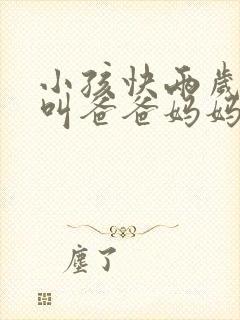 小孩快两岁
叫爸爸妈妈
尘了